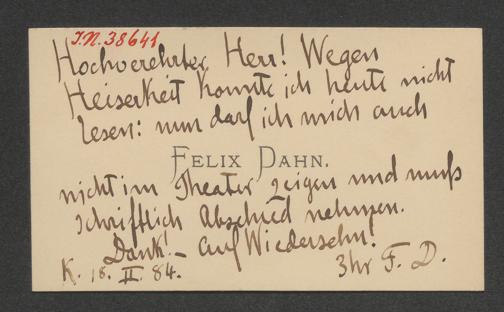 J.N. 38641
Hochverehrter Herr! Wegen
Heiserkeit konnte ich heute nicht
lesen: nun darf ich mich auch
FELIX DAHN.
nicht im Theater zeigen und muß
schriftlich Abschied nehmen.
Dank! – Auf Wiedersehn!
K. 18. II. 84. Ihr F. D.